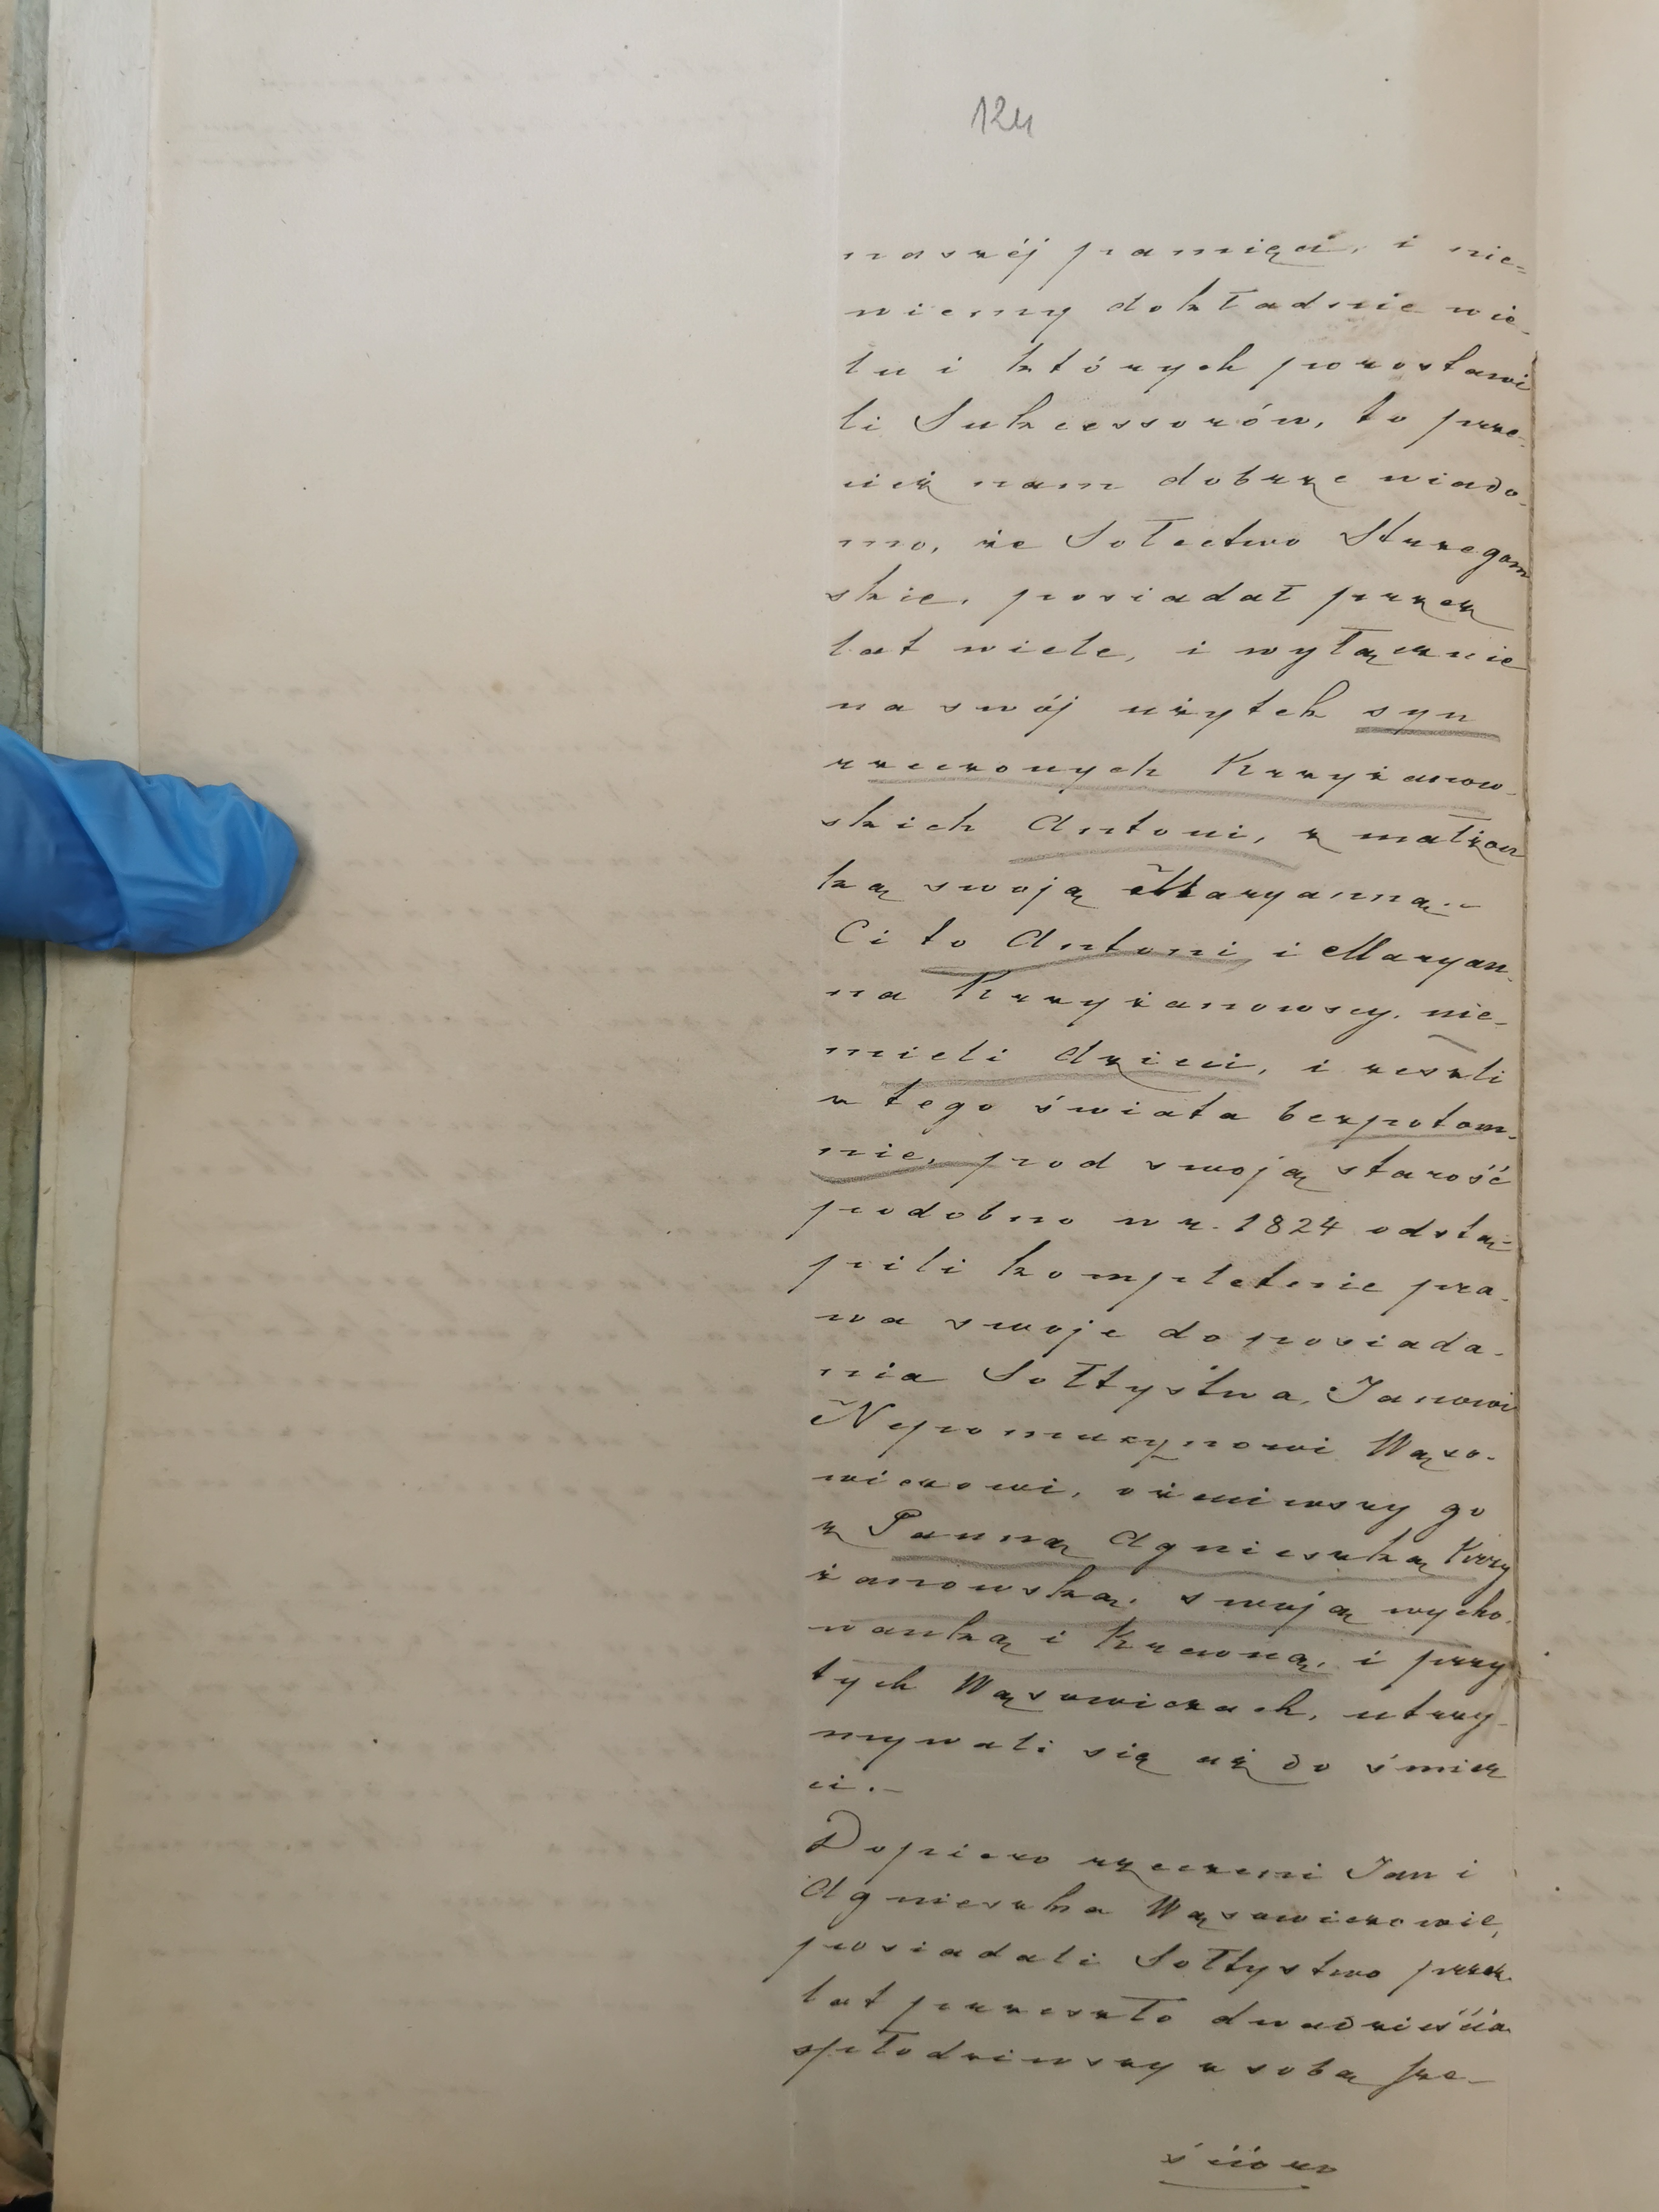 124
naszéj pamięci, i nie=
wiemy dokładnie wie-
lu i których pozostawi
li Sukcessorów, to prze-
cież nam dobrze wiado-
mo, że Sołectwo Strzegom
skie, posiadał przez
lat wiele, i wyłącznie
na swój użytek syn
rzeczonych Krzyżanow-
skich Antoni, z małżon
ką swoją Maryanną.-
Ci to Antoni i Maryan-
na Krzyżanowscy, nie-
mieli dzieci, i zeszli
z tego świata bezpotom-
nie, pod swoją starość
podobno w r. 1824 odstą=
pili kompletnie pra-
wa swoje do posiada-
nia Sołtystwa, Janowi
Nepomucynowi Wąso-
wiczowi, ożeniwszy go
z Panną Agnieszką Krzy
żanowską, swoją wycho-
wanką i Krewną, i przy
tych Wąsowiczach, utrzy-
mywali się aż do śmier
ci.-
Dopiero rzeczeni Jan i
Agnieszka Wąsowiczowie,
posiadali Sołtystwo przez
lat przeszło dwadzieścia
spłodziwszy z sobą sze-
ścioro